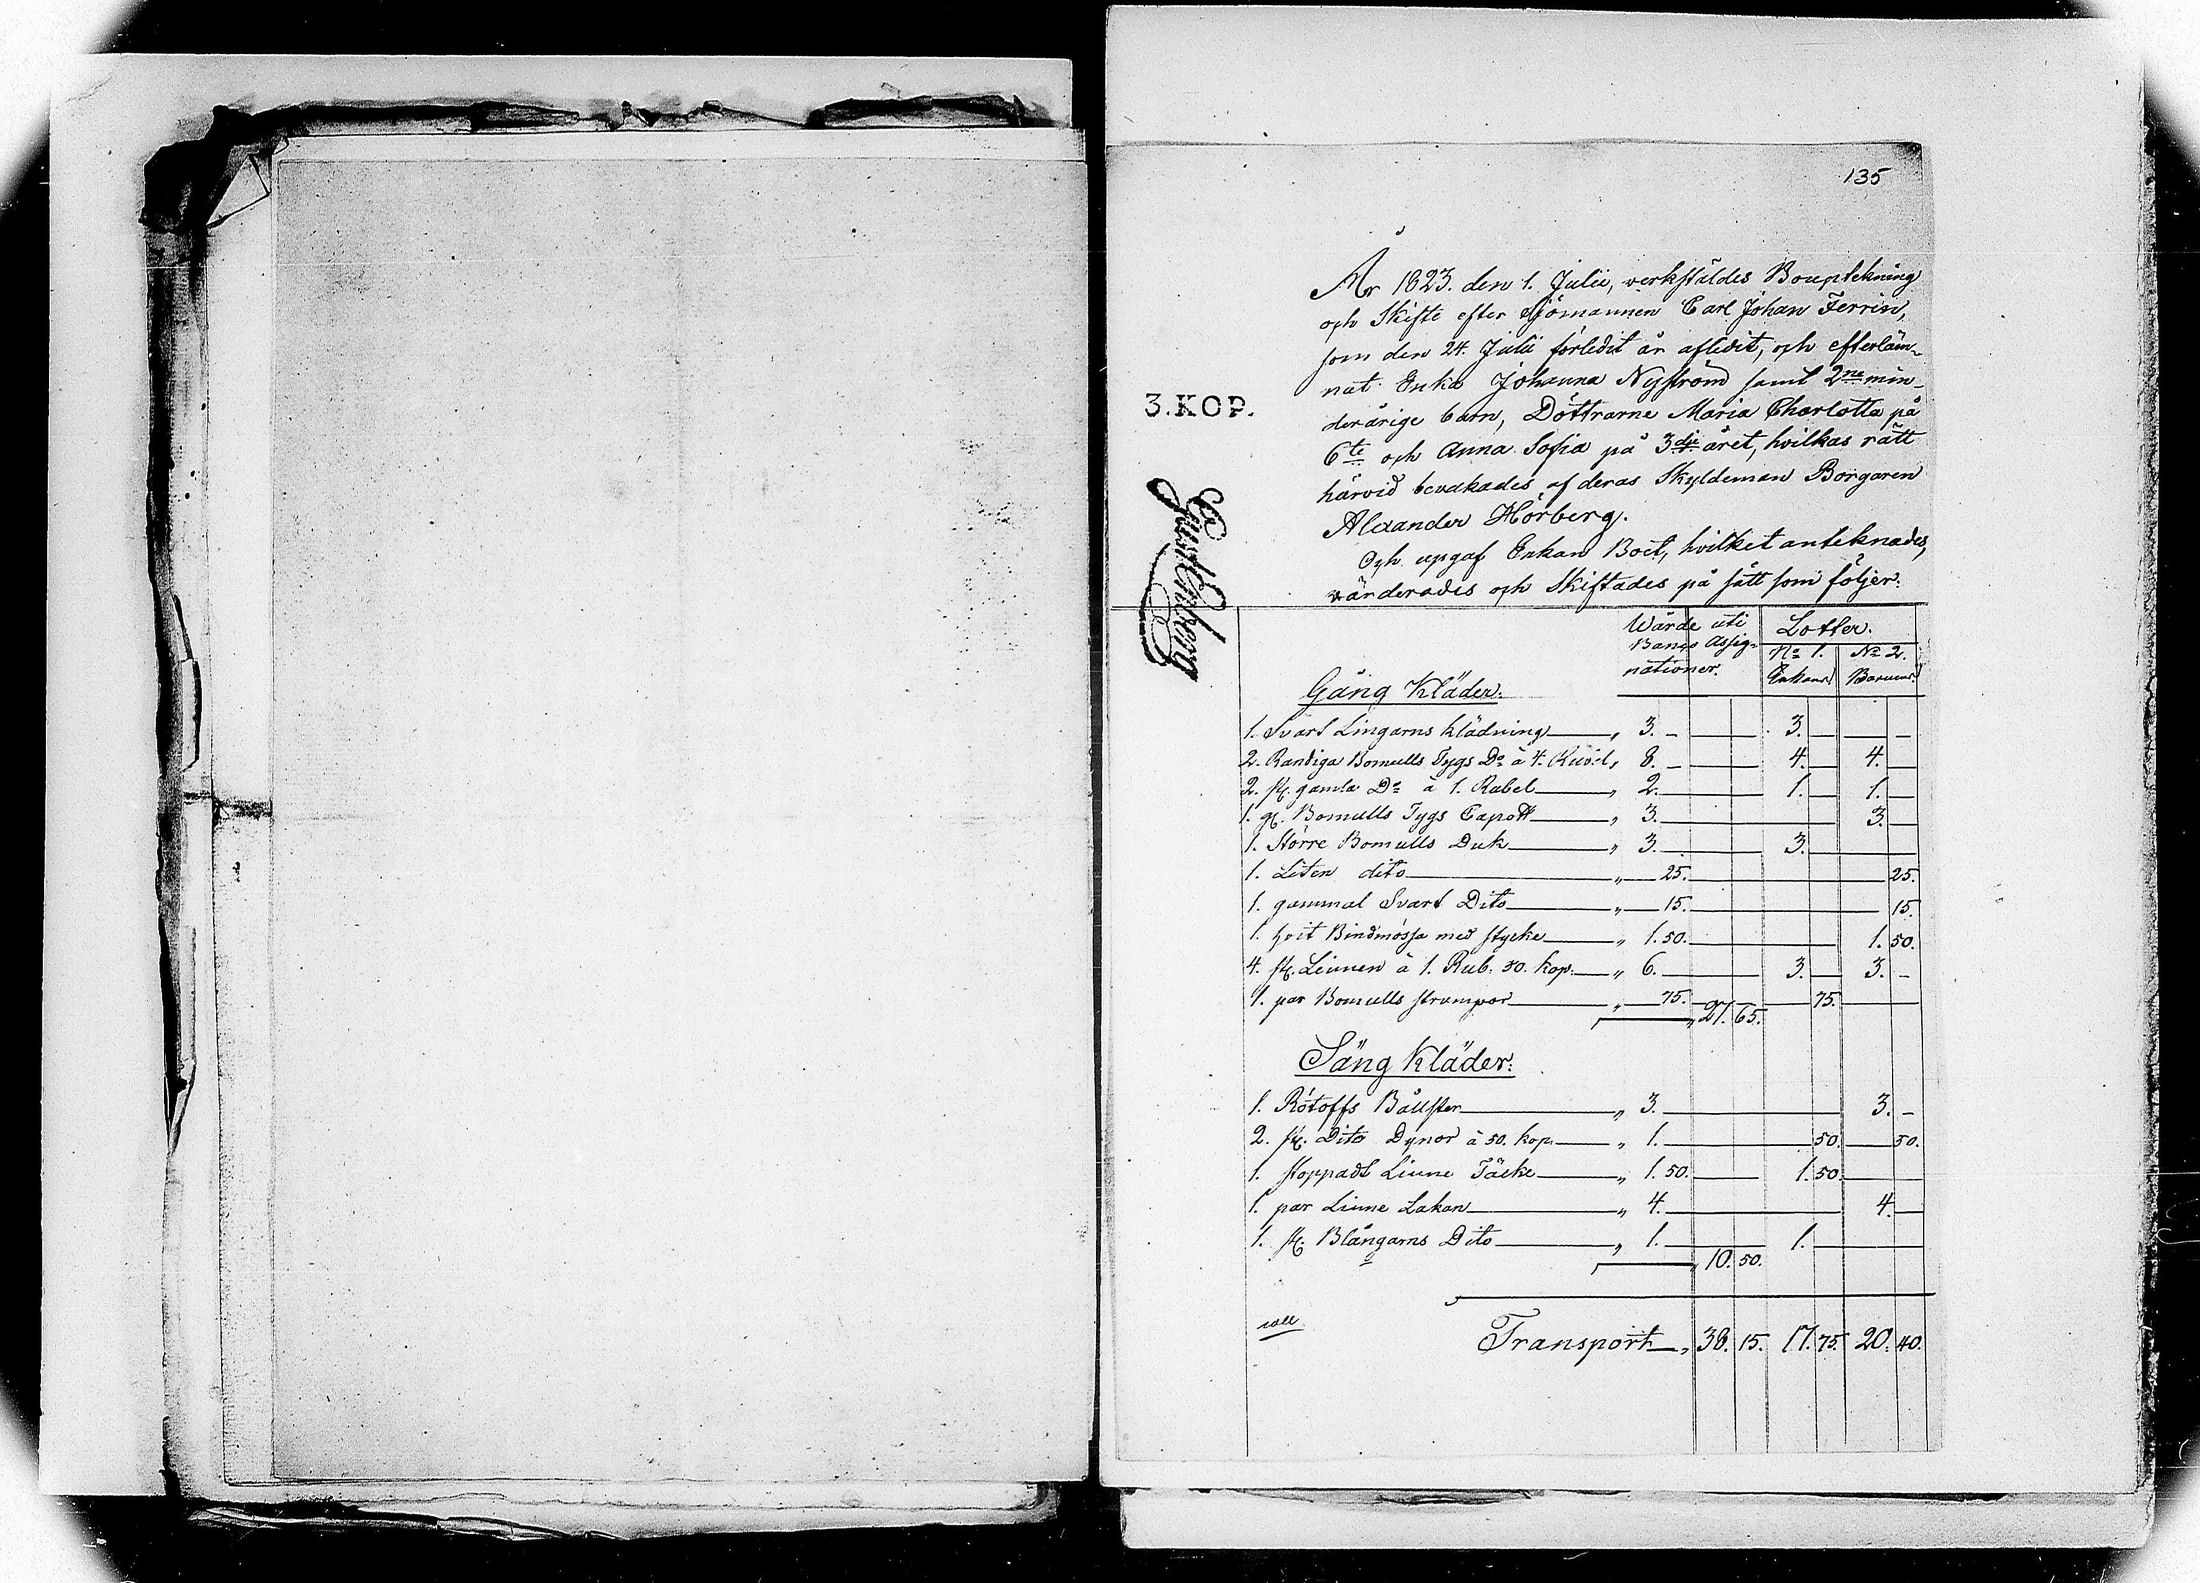 135
År 1823. den 1. Julii, verkstäldes Bouptekning
och Skifte efter Sjömannen Carl Johan Ferrin,
som den 24. Julii förledit år afledit, och efterläm-
nat Enka Johanna Nyström samt 2ne min-
derårige barn, Döttrarne Maria Charlotta på
6te och Anna Sofia på 3dje året, hvilkas rätt
härvid bevakades af deras Skyldeman Borgaren
Alexander Hörberg.
Och upgaf Enkan Boet, hvilket anteknades,
värderades och Skiftades på sätt som följer:
3.KOP.
Wärde uti Banco Assig- nationer.
Lotter.
No 1. Enkans No 2. Barnens
Gång Kläder:
1. Svart Lingarns klädning " 3. - 3. -
2. Randiga Bomulls Tygs Do à 4. Rub:l " 8. - 4. 4.
2. st. gamla Do à 1. Rubel " 2. 1. 1.
1. gl. Bomulls Tygs Capott " 3. 3.
1. Större Bomulls Duk " 3. 3.
1. Liten dito " 25. 25.
1. gammal Svart Dito " 15. 15.
1. hvit Bindmössa med stycke " 1. 50. 1. 50.
4. st. Linnen à 1. Rub. 50. kop. " 6. 3. 3. -
1. par Bomulls strumpor " 75. 75.
" 27. 65.
Säng Kläder:
1. Rötoffs Bållster " 3. 3. -
2. st. Dito Dynor à 50. kop. " 1. 50. 50.
1. stoppadt Linne Täcke " 1. 50. 1. 50.
1. par Linne Lakan " 4. 4.
1. st. Blångarns Dito " 1. 1.
" 10. 50.
Transport " 38. 15. 17. 75. 20. 40.